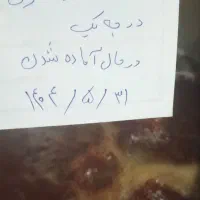 در جه یک
در حال آماده شدن
۱۴۰۴ / ۵ / ۳۱